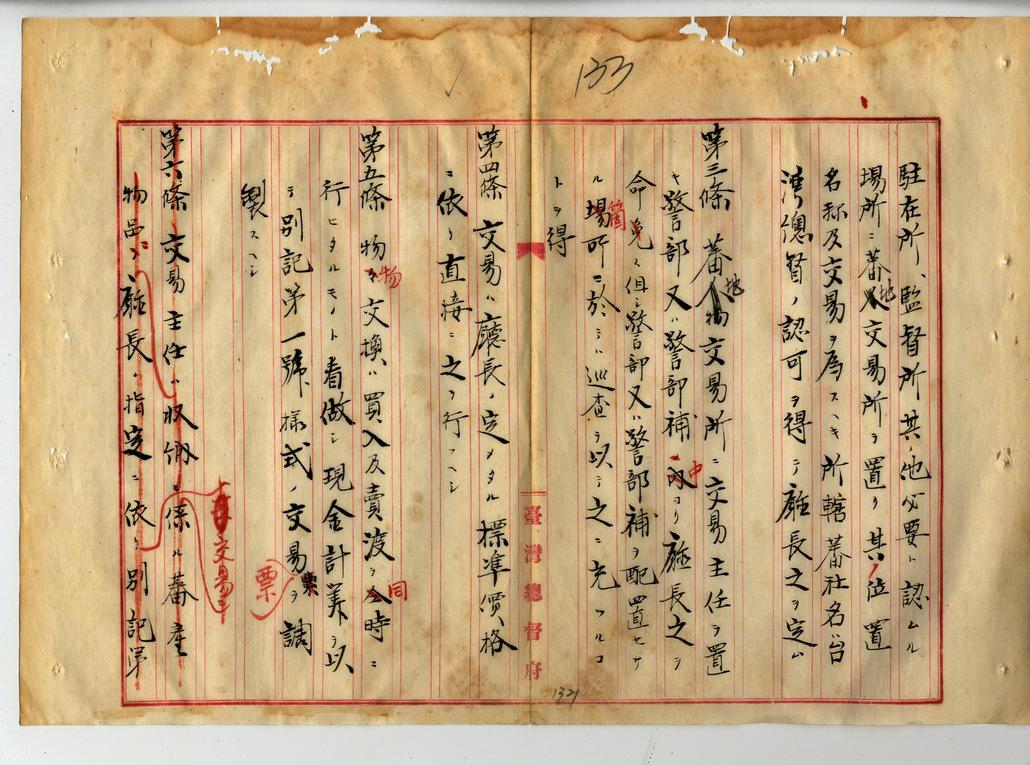 133
駐在所、監督所其ノ他必要ト認ムル
場所ニ蕃地交易所ヲ置ク其ノ位置
名称及交易ヲ為スヘキ所轄蕃社名ハ台
湾総督ノ認可ヲ得テ廳長之ヲ定ム
第三條 蕃地交易所ニ交易主任ヲ置
キ警部又ハ警部補ノ中ヨリ廳長之ヲ
命免ス但シ警部又ハ警部補ヲ配置セサ
ル箇所ニ於テハ巡査ヲ以テ之ニ充ツルコ
トヲ得
臺灣總督府
第四條 交易ハ廳長ノ定メタル標準價格
ニ依リ直接ニ之ヲ行フヘシ
第五條 物々交換ハ買入及賣渡ヲ同時ニ
行ヒタルモノト看做シ現金計算ヲ以
テ別記第一號様式ノ交易票ヲ調
票
製スヘシ
毎交易
第六條 交易主任ハ収納ニ係ル蕃産
物品ヲ廳長ノ指定ニ依リ別記第